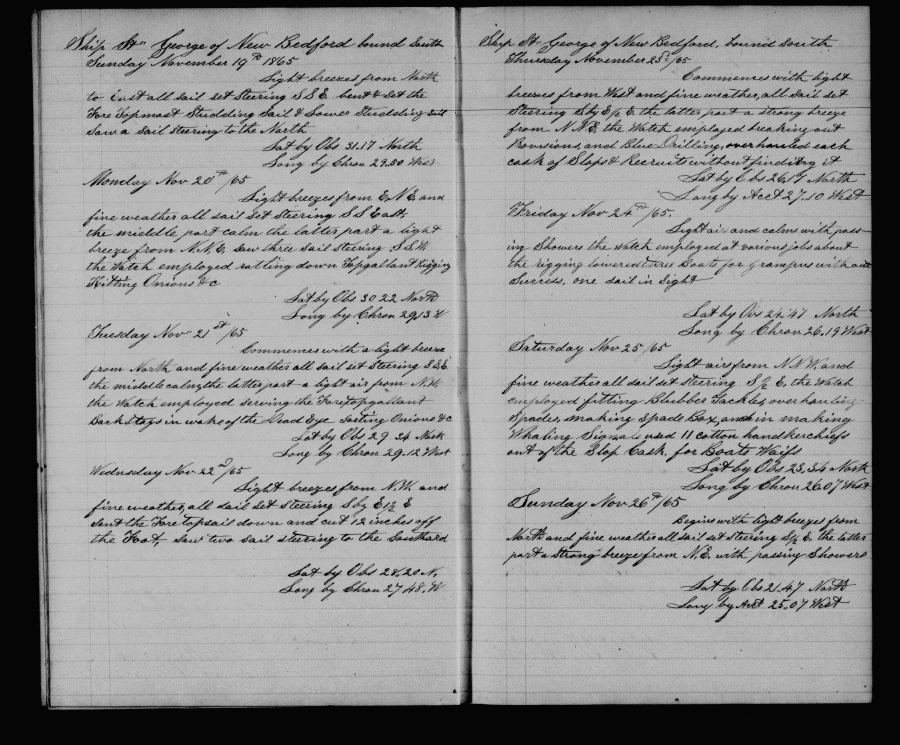 Ship St George of New Bedford bound South
Sunday November 19th 1865
Light breezes from North
to East all sail set Steering S S E bent & Set the
Fore Topmast Studding Sail & Lower Studding Sail
Saw a Sail Steering to the North
Lat by Obs 31.17 North
Long by Chron 29.50 West
Monday Nov 20th /65
Light breezes from E N E and
fine weather all sail Set Steering S S East,
the middle part calm the latter part a light
breeze from N.N.E. saw three Sail Steering S.S.W.
the Watch employed ratling down Topgallant Rigging
Kitting Onions &c
Lat by Obs 30 22 North
Long by Chron 29.13 W
Tuesday Nov 21st /65
Commences with a light breeze
from North and fine weather all sail set Steering S S E
the middle calm, the latter part a light air from N.W.
the Watch employed serving the Foretopgallant
Backstays in wake of the Dead Eye Onions &c
Lat by Obs 29 24 North
Long by Chron 29.12 West
Wednesday Nov 22d /65
Light breezes from N.W. and
fine weather, all sail set Steering S by E 1/2 E
Sent the Fore topsail down and cut 12 inches off
the Foot, saw two sail steering to the Southard
Lat by Obs 28.20 N.
Long by Chron 27 48. W
Ship St George of New Bedford, bound South
Thursday November 23d /65
Commences with light
breezes from West and fine weather, all sail set
Steering S by E 1/2 E. the latter part a strong breeze
from N.N.E. the Watch employed breaking out
Provisions and Blue Drilling, overhauled each
cask of Slops & Recruits without finding it
Lat by Obs 26.19 North
Long by Acct 27.10 West
Friday Nov 24th /65.
Light air and calms with pass-
ing Showers the Watch employed at various jobs about
the rigging lowered three Boats for Grampus with out
Success, one sail in Sight
Lat by Obs 24.47 North
Long by Chron 26.19 West
Saturday Nov 25 /65
Light airs from N.N.W. and
fine weather all sail set Steering S 1/2 E, the Watch
employed fitting Blubber Tackles, overhauling
Spades, making Spade Box, and in making
Whaling Signals used 11 cotton handkerchiefs
out of the Slop Cask, for Boats Waifs
Lat by Obs 23.34 North
Long by Chron 26.07 West
Sunday Nov 26th /65
Begins with light breezes from
North and fine weather all sail set steering S 1/2 E. the latter
part a Strong breeze from N.E. with passing Showers
Lat by Obs 21.47 North
Long by Acct 25.07 West